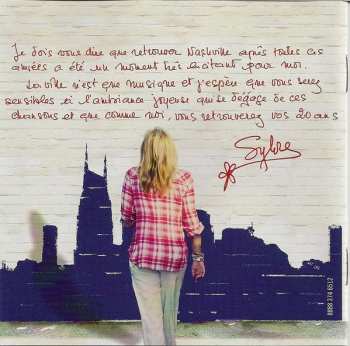 Je dois vous dire que retrouver Nashville après toutes ces
années a été un moment très excitant pour moi.
La ville n'est que musique et j'espère que vous serez
sensibles à l'ambiance joyeuse qui se dégage de ces
chansons et que comme moi, vous retrouverez vos 20 ans
Sylvie
8888 374 6512